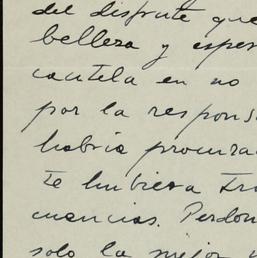 del disfrute que
belleza y esper
cautela en no
por la respons
habría procura
te hubiera tra
cuencias. Perdon
solo la mejor